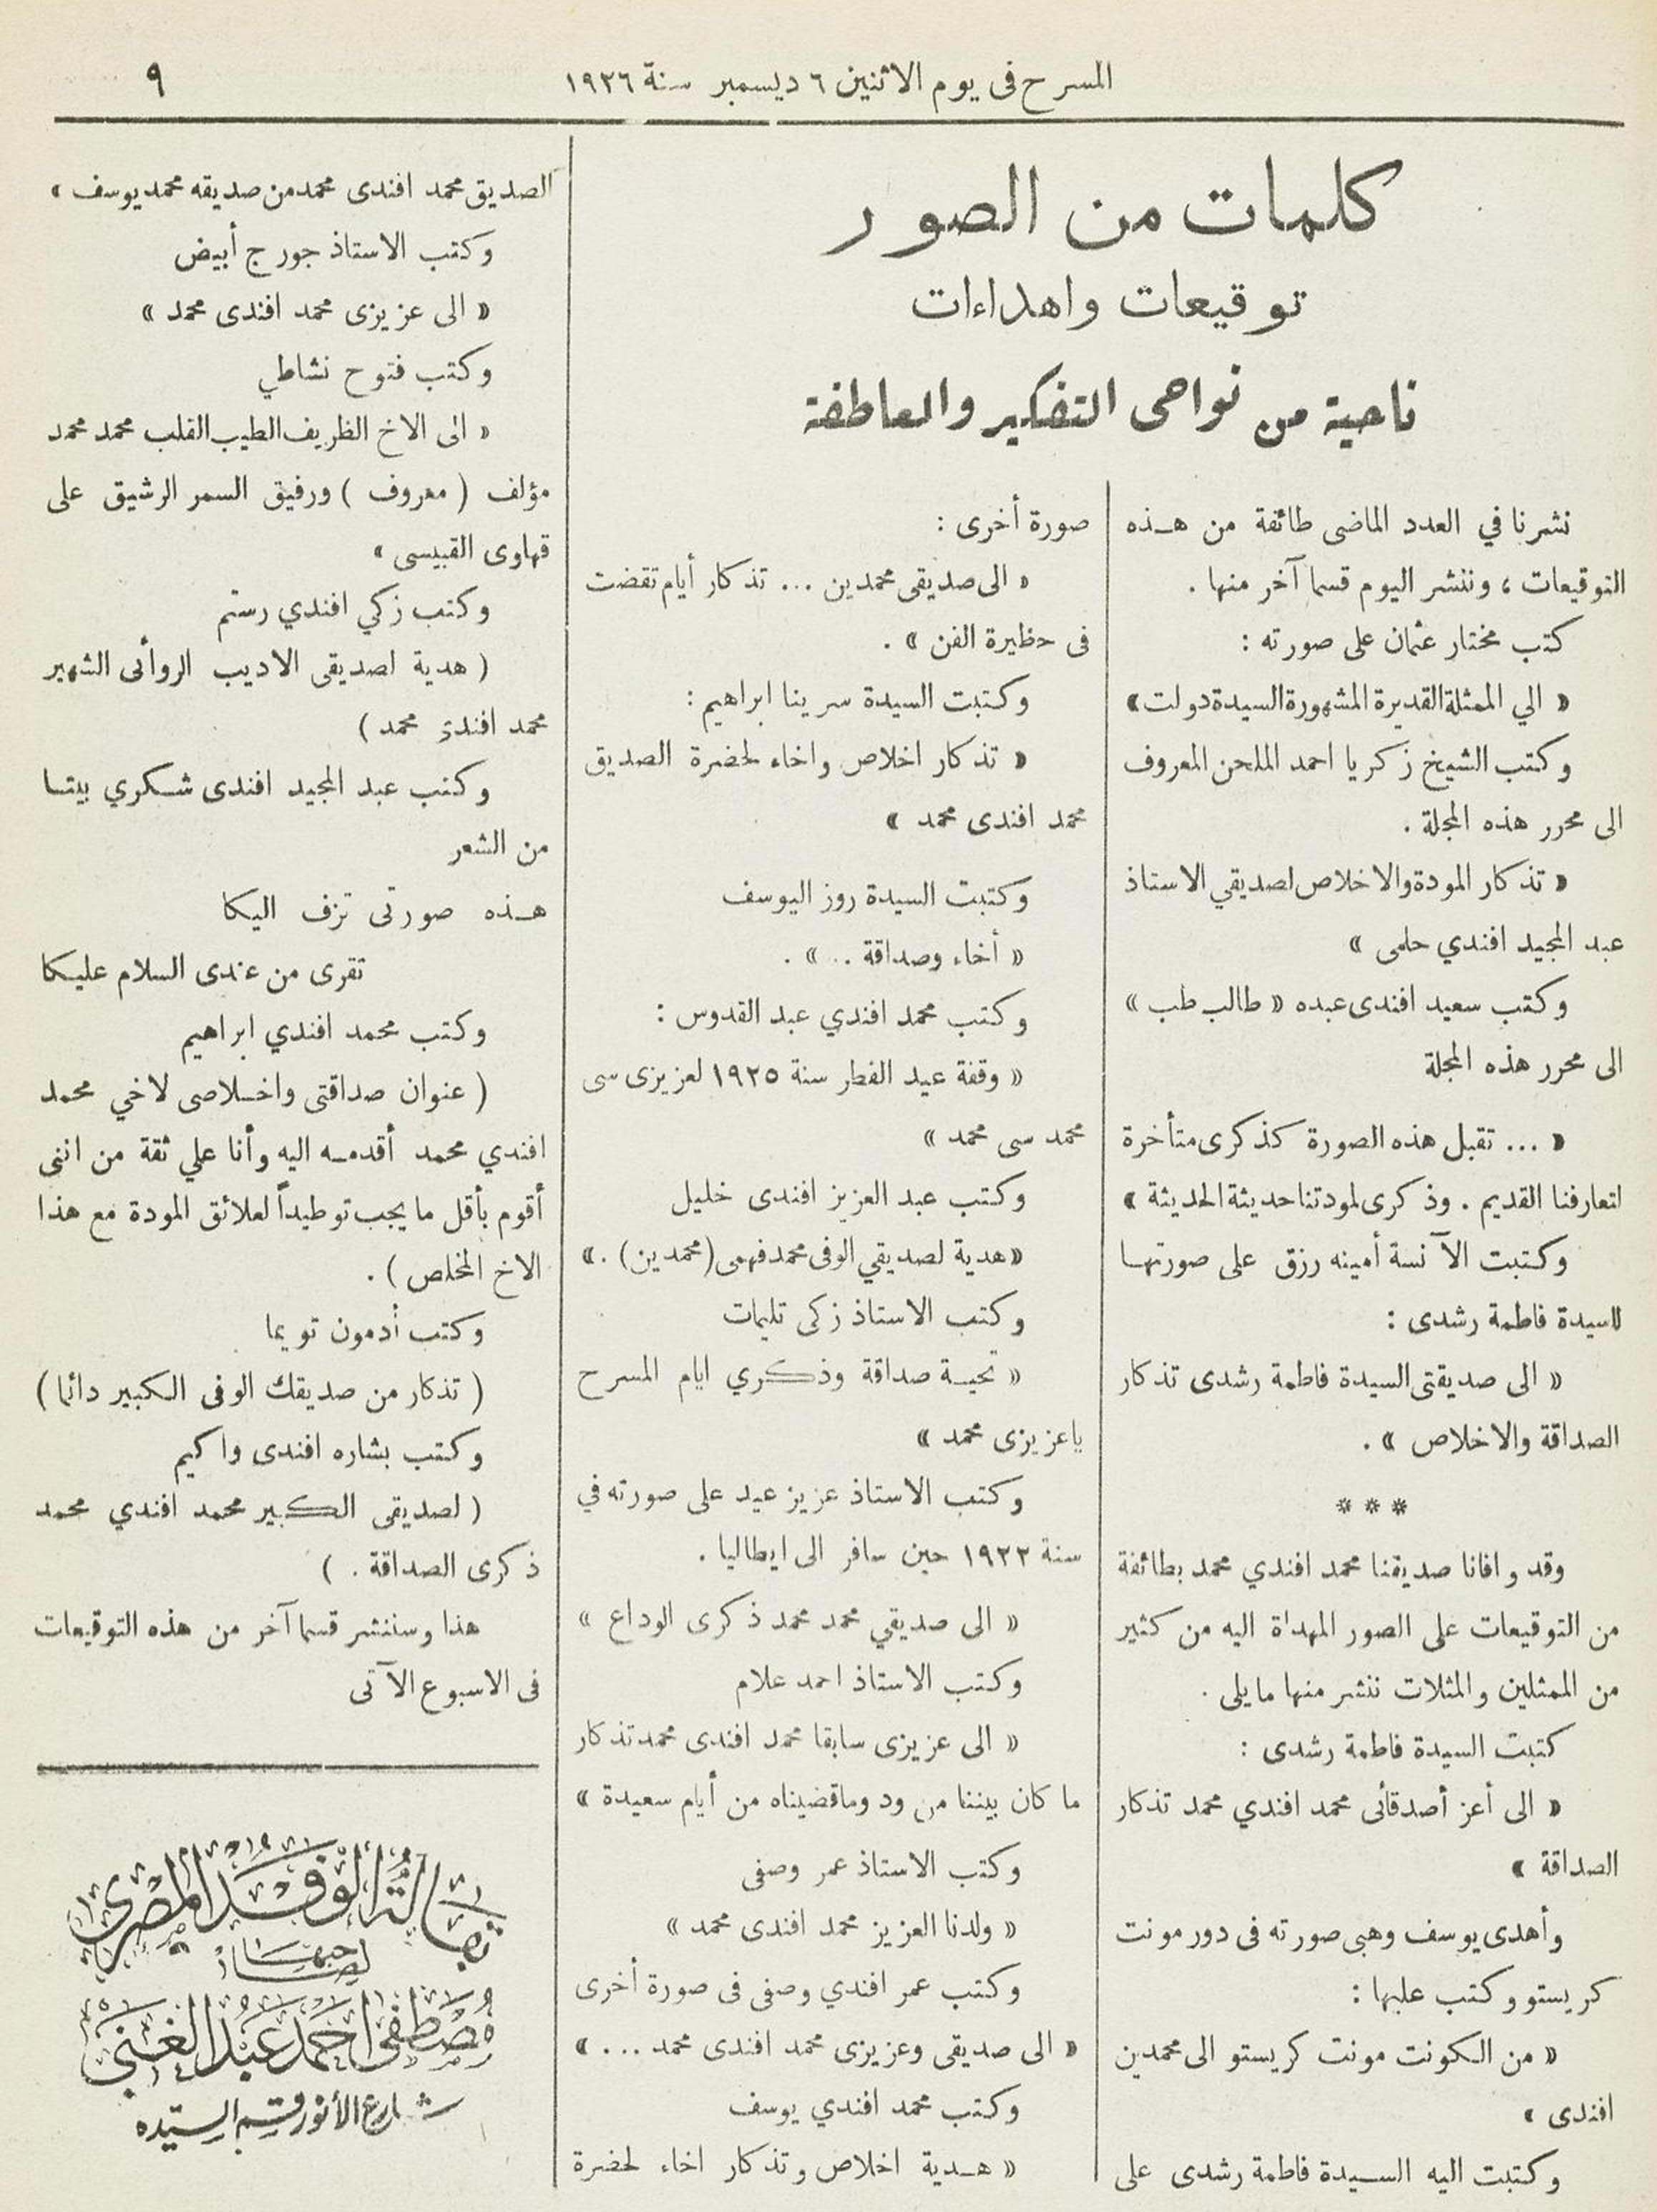 المسرح فى يوم الاثنين ٦ ديسمبر سنة ١٩٢٦
٩
كلمات من الصور
توقيعات واهداءات
ناحية من نواحى التفكير والعاطفة
نشرنا في العدد الماضى طائفة من هـذه
التوقيعات ، وننشر اليوم قسما آخر منها .
كتب مختار عثمان على صورته :
« الي الممثلة القديرة المشهورة السيدة دولت »
وكتب الشيخ زكريا احمد الملحن المعروف
الى محرر هذه المجلة .
« تذكار المودة والاخلاص لصديقي الاستاذ
عبد المجيد افندي حلمى »
وكتب سعيد افندى عبده « طالب طب »
الى محرر هذه المجلة
« ... تقبل هذه الصورة كذكرى متأخرة
لتعارفنا القديم . وذكرى لمودتنا حديثة الحديثة »
وكتبت الآنسة أمينه رزق على صورتهـا
للسيدة فاطمة رشدى :
« الى صديقتى السيدة فاطمة رشدى تذكار
الصداقة والاخلاص » .
* * *
وقد وافانا صديقنا محمد افندي محمد بطائفة
من التوقيعات على الصور المهداة اليه من كثير
من الممثلين والمثلات ننشر منها مايلى .
كتبت السيدة فاطمة رشدى :
« الى أعز أصدقأئى محمد افندي محمد تذكار
الصداقة »
وأهدى يوسف وهبى صورته فى دور مونت
كريستو وكتب عليها :
« من الكونت مونت كريستو الى محمدين
افندى »
وكتبت اليه السـيدة فاطمة رشدى على
صورة أخرى :
« الى صديقى محمدين ... تذكار أيام تقضت
فى حظيرة الفن » .
وكتبت السيدة سرينا ابراهيم :
« تذكار اخلاص واخاء لحضرة الصديق
محمد افندى محمد »
وكتبت السيدة روز اليوسف
« أخاء وصداقة .. » .
وكتب محمد افندي عبد القدوس :
« وقفة عيد الفطر سنة ١٩٢٥ لعزيزى سى
محمد سى محمد »
وكتب عبد العزيز افندى خليل
« هدية لصديقي الوفى محمد فهمى (محمدين) . »
وكتب الاستاذ زكى تليمات
« تحيـة صداقة وذكري ايام المسرح
ياعزيزى محمد »
وكتب الاستاذ عزيز عيد على صورته في
سنة ١٩٢٢ حين سافر الى ايطاليا .
« الى صديقي محمد محمد ذكرى الوداع »
وكتب الاستاذ احمد علام
« الى عزيزى سابقا محمد افندى محمد تذكار
ما كان بيننا من ود وماقضيناه من أيام سعيدة »
وكتب الاستاذ عمر وصفى
« ولدنا العزيز محمد افندى محمد »
وكتب عمر افندي وصفى فى صورة أخرى
« الى صديقى وعزيزى محمد افندى محمد ... »
وكتب محمد افندي يوسف
« هـدية اخلاص وتذكار اخاء لحضرة
الصديق محمد افندى محمد من صديقه محمد يوسف »
وكتب الاستاذ جورج أبيض
« الى عزيزى محمد افندى محمد »
وكتب فتوح نشاطي
« الى الاخ الظريف الطيب القلب محمد محمد
مؤلف ( معروف ) ورفيق السمر الرشيق على
قهاوى القبيسى »
وكتب زكي افندي رستم
( هدية لصديقى الاديب الروأئى الشهير
محمد افندى محمد )
وكتب عبد المجيد افندى شـكري بيتـا
من الشعر
هـذه صورتى تزف اليكا
تقرى من عندى السلام عليـكا
وكتب محمد افندي ابراهيم
( عنوان صداقتى واخـلاصى لاخي محمد
افندي محمد أقدمـه اليه وأنا علي ثقة من اننى
أقوم بأقل ما يجب توطيداً لعلائق المودة مع هذا
الاخ المخلص ) .
وكتب أدمون تويما
( تذكار من صديقك الوفى الكبير دائما )
وكتب بشاره افندى واكيم
( لصديقى الكبير محمد افندي محمد
ذكرى الصداقة . )
هذا وسننشر قسما آخر من هذه التوقيعات
فى الاسبوع الآتى
الوفد المصرى
لصاحبها
مصطفى احمد عبد الغنى
شارع الأنور قسم السيده